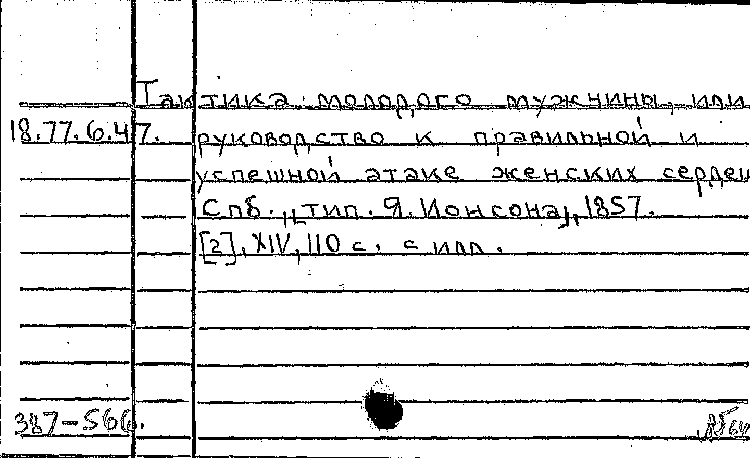 Тактика молодого мужчины, или
18.77.6.47. руководство к правильной и
успешной атаке женских сердец
Спб., тип. Я. Ионсона, 1857.
[2], XIV, 110 с. с илл.
387-566.